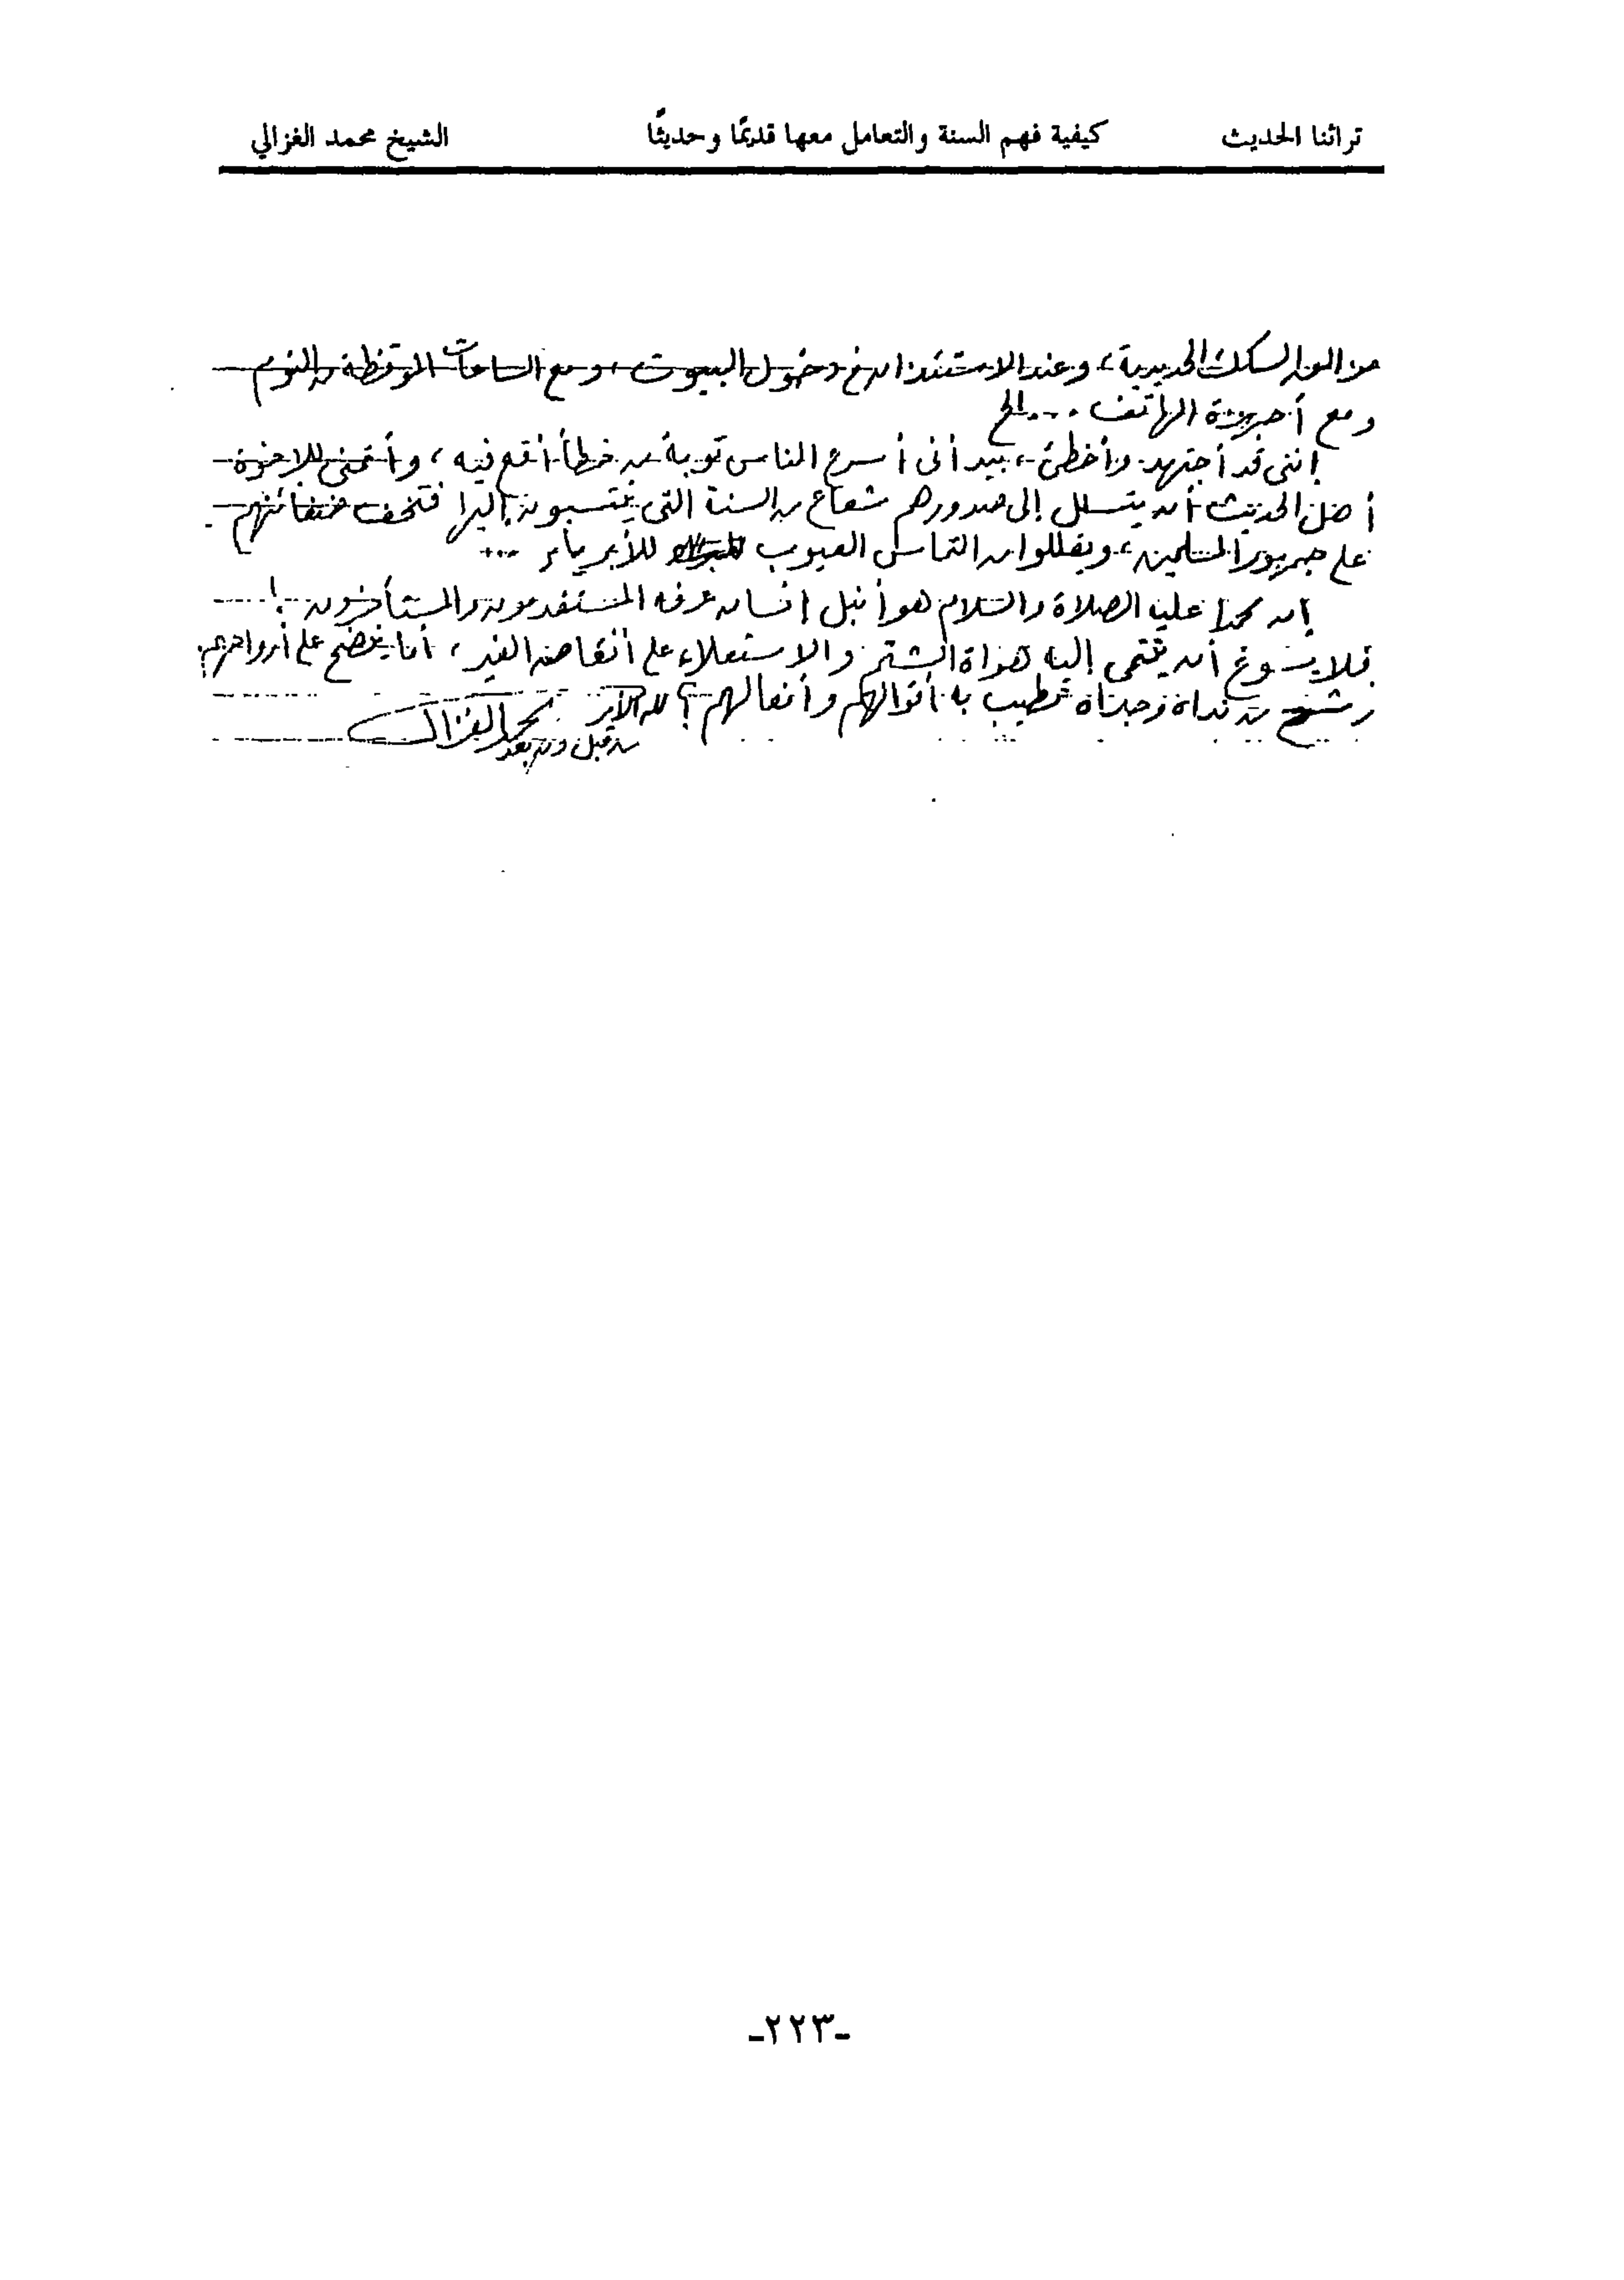 تراثنا الحديث كيفية فهم السنة والتعامل معها قديمًا وحديثًا الشيخ محمد الغزالي
السكك الحديدية، وعند الاستئذان في دخول البيوت، ومع الساعات الموقظة من النوم
ومع أجهزة الهاتف ... الخ
إننى قد أجتهد وأخطئ، بيد أنى أسرع الناس توبة من خطأ أقع فيه، وأتمنى للإخوة
أهل الحديث أن يتسلل إلى صدورهم شعاع من السنة التى ينتسبون إليها فتخف ضغائنهم
على جمهور المسلمين، ويقللوا من التماس العيوب للأبرياء ...
إن محمدا عليه الصلاة والسلام هو أنبل إنسان عرفه المستقدمون والمستأخرون ..!
فلا يسوغ أن ينتمى إليه هواة الشتم والاستعلاء على أنقاض الغير، أما ينضح على أرواحهم
رشح من نداه وجداه تطيب به أقوالهم وأفعالهم؟ لله الأمر
من قبل ومن بعد محمد الغزالى
-٢٢٣-